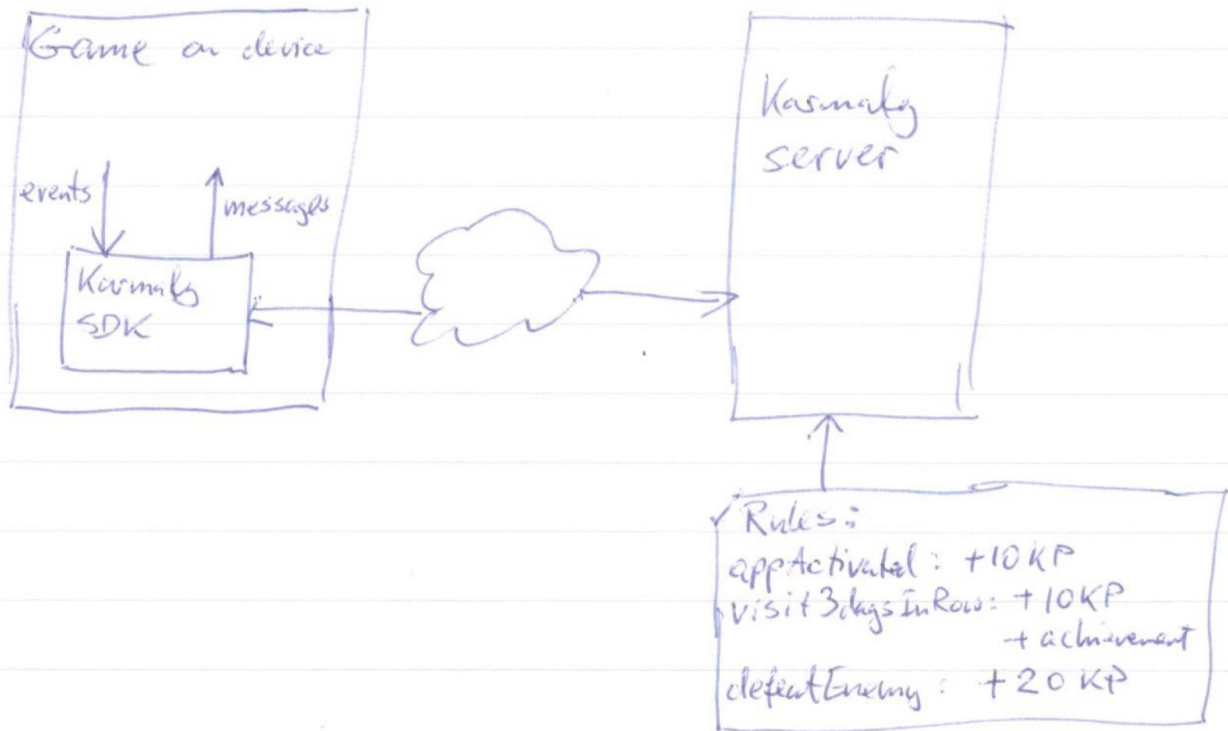 Game on device
events
messages
Karmaly
SDK
Karmaly
server
Rules:
appActivated: +10KP
visit3daysInRow: +10KP
+ achievement
defeatEnemy: +20 KP